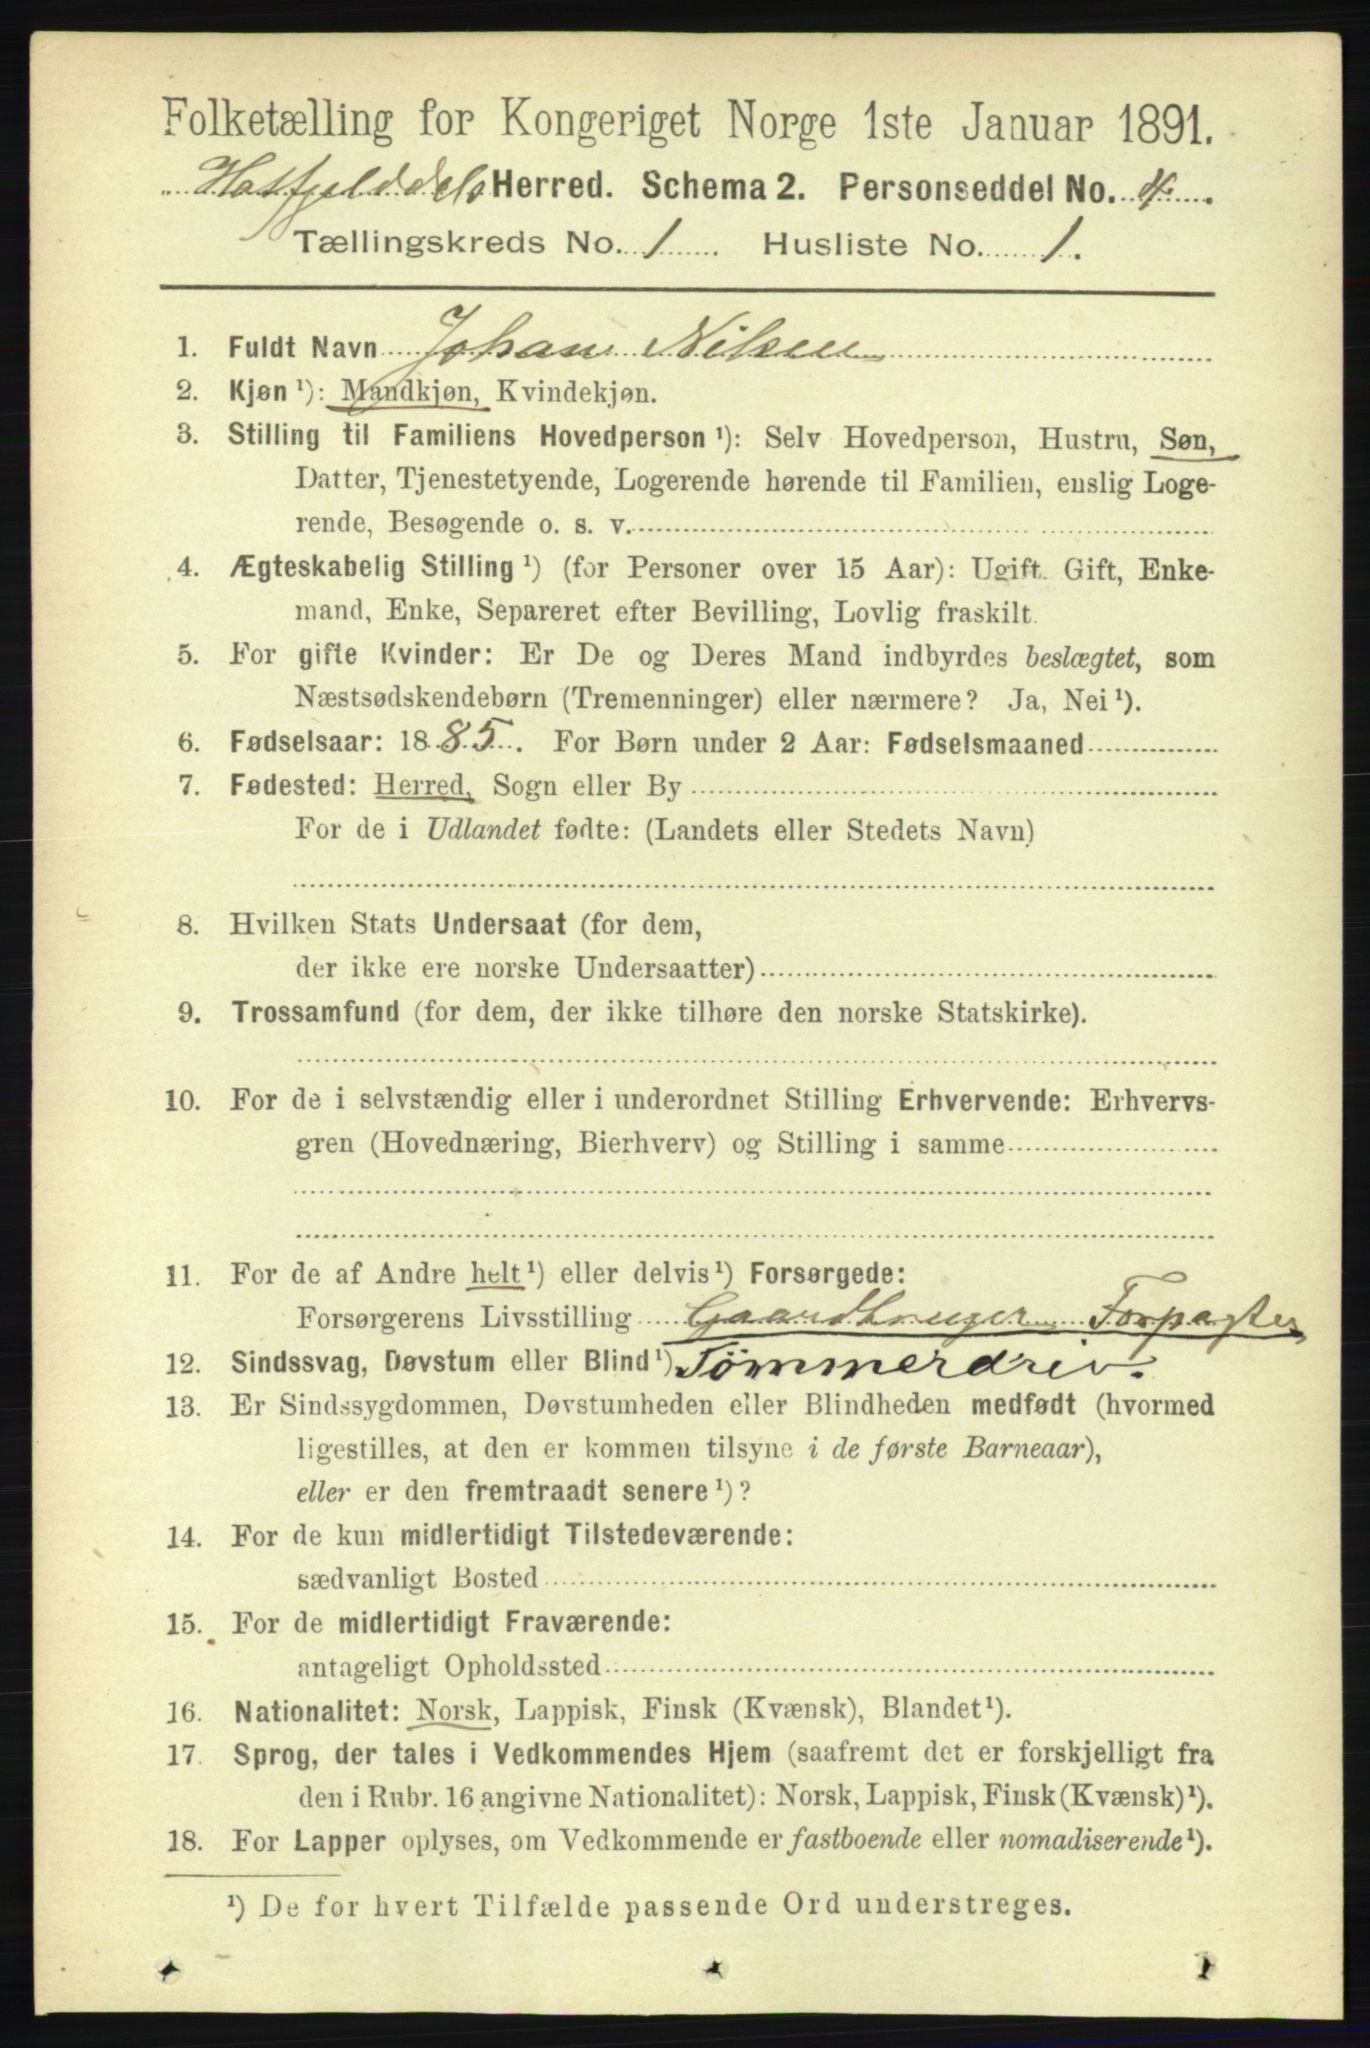 Folketælling for Kongeriget Norge 1ste Januar 1891.
Hatfjelddals Herred. Schema 2. Personseddel No. 4.
Tællingskreds No. 1. Husliste No. 1.
1. Fuldt Navn Johan Nilsen
2. Kjøn ¹): Mandkjøn, Kvindekjøn.
3. Stilling til Familiens Hovedperson ¹): Selv Hovedperson, Hustru, Søn,
Datter, Tjenestetyende, Logerende hørende til Familien, enslig Loge-
rende, Besøgende o. s. v.
4. Ægteskabelig Stilling ¹) (for Personer over 15 Aar): Ugift. Gift, Enke-
mand, Enke, Separeret efter Bevilling, Lovlig fraskilt.
5. For gifte Kvinder: Er De og Deres Mand indbyrdes beslægtet, som
Næstsødskendebørn (Tremenninger) eller nærmere? Ja, Nei ¹).
6. Fødselsaar: 1885. For Børn under 2 Aar: Fødselsmaaned
7. Fødested: Herred, Sogn eller By
For de i Udlandet fødte: (Landets eller Stedets Navn)
8. Hvilken Stats Undersaat (for dem,
der ikke ere norske Undersaatter)
9. Trossamfund (for dem, der ikke tilhøre den norske Statskirke).
10. For de i selvstændig eller i underordnet Stilling Erhvervende: Erhvervs-
gren (Hovednæring, Bierhverv) og Stilling i samme
11. For de af Andre helt ¹) eller delvis ¹) Forsørgede:
Forsørgerens Livsstilling Gaardbruger Forpagter
12. Sindssvag, Døvstum eller Blind ¹) Tømmerdriv.
13. Er Sindssygdommen, Døvstumheden eller Blindheden medfødt (hvormed
ligestilles, at den er kommen tilsyne i de første Barneaar),
eller er den fremtraadt senere ¹)?
14. For de kun midlertidigt Tilstedeværende:
sædvanligt Bosted
15. For de midlertidigt Fraværende:
antageligt Opholdssted
16. Nationalitet: Norsk, Lappisk, Finsk (Kvænsk), Blandet ¹).
17. Sprog, der tales i Vedkommendes Hjem (saafremt det er forskjelligt fra
den i Rubr. 16 angivne Nationalitet): Norsk, Lappisk, Finsk (Kvænsk) ¹).
18. For Lapper oplyses, om Vedkommende er fastboende eller nomadiserende ¹).
¹) De for hvert Tilfælde passende Ord understreges.